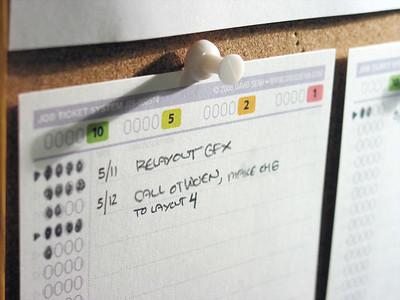 JOB TICKET SYSTEM
© 2006 DAVID SEAH
0000 10 0000 5 0000 2 0000 1
5/11 RELAYOUT GFX
5/12 CALL OTWOEN, MAKE CHG
TO LAYOUT 4